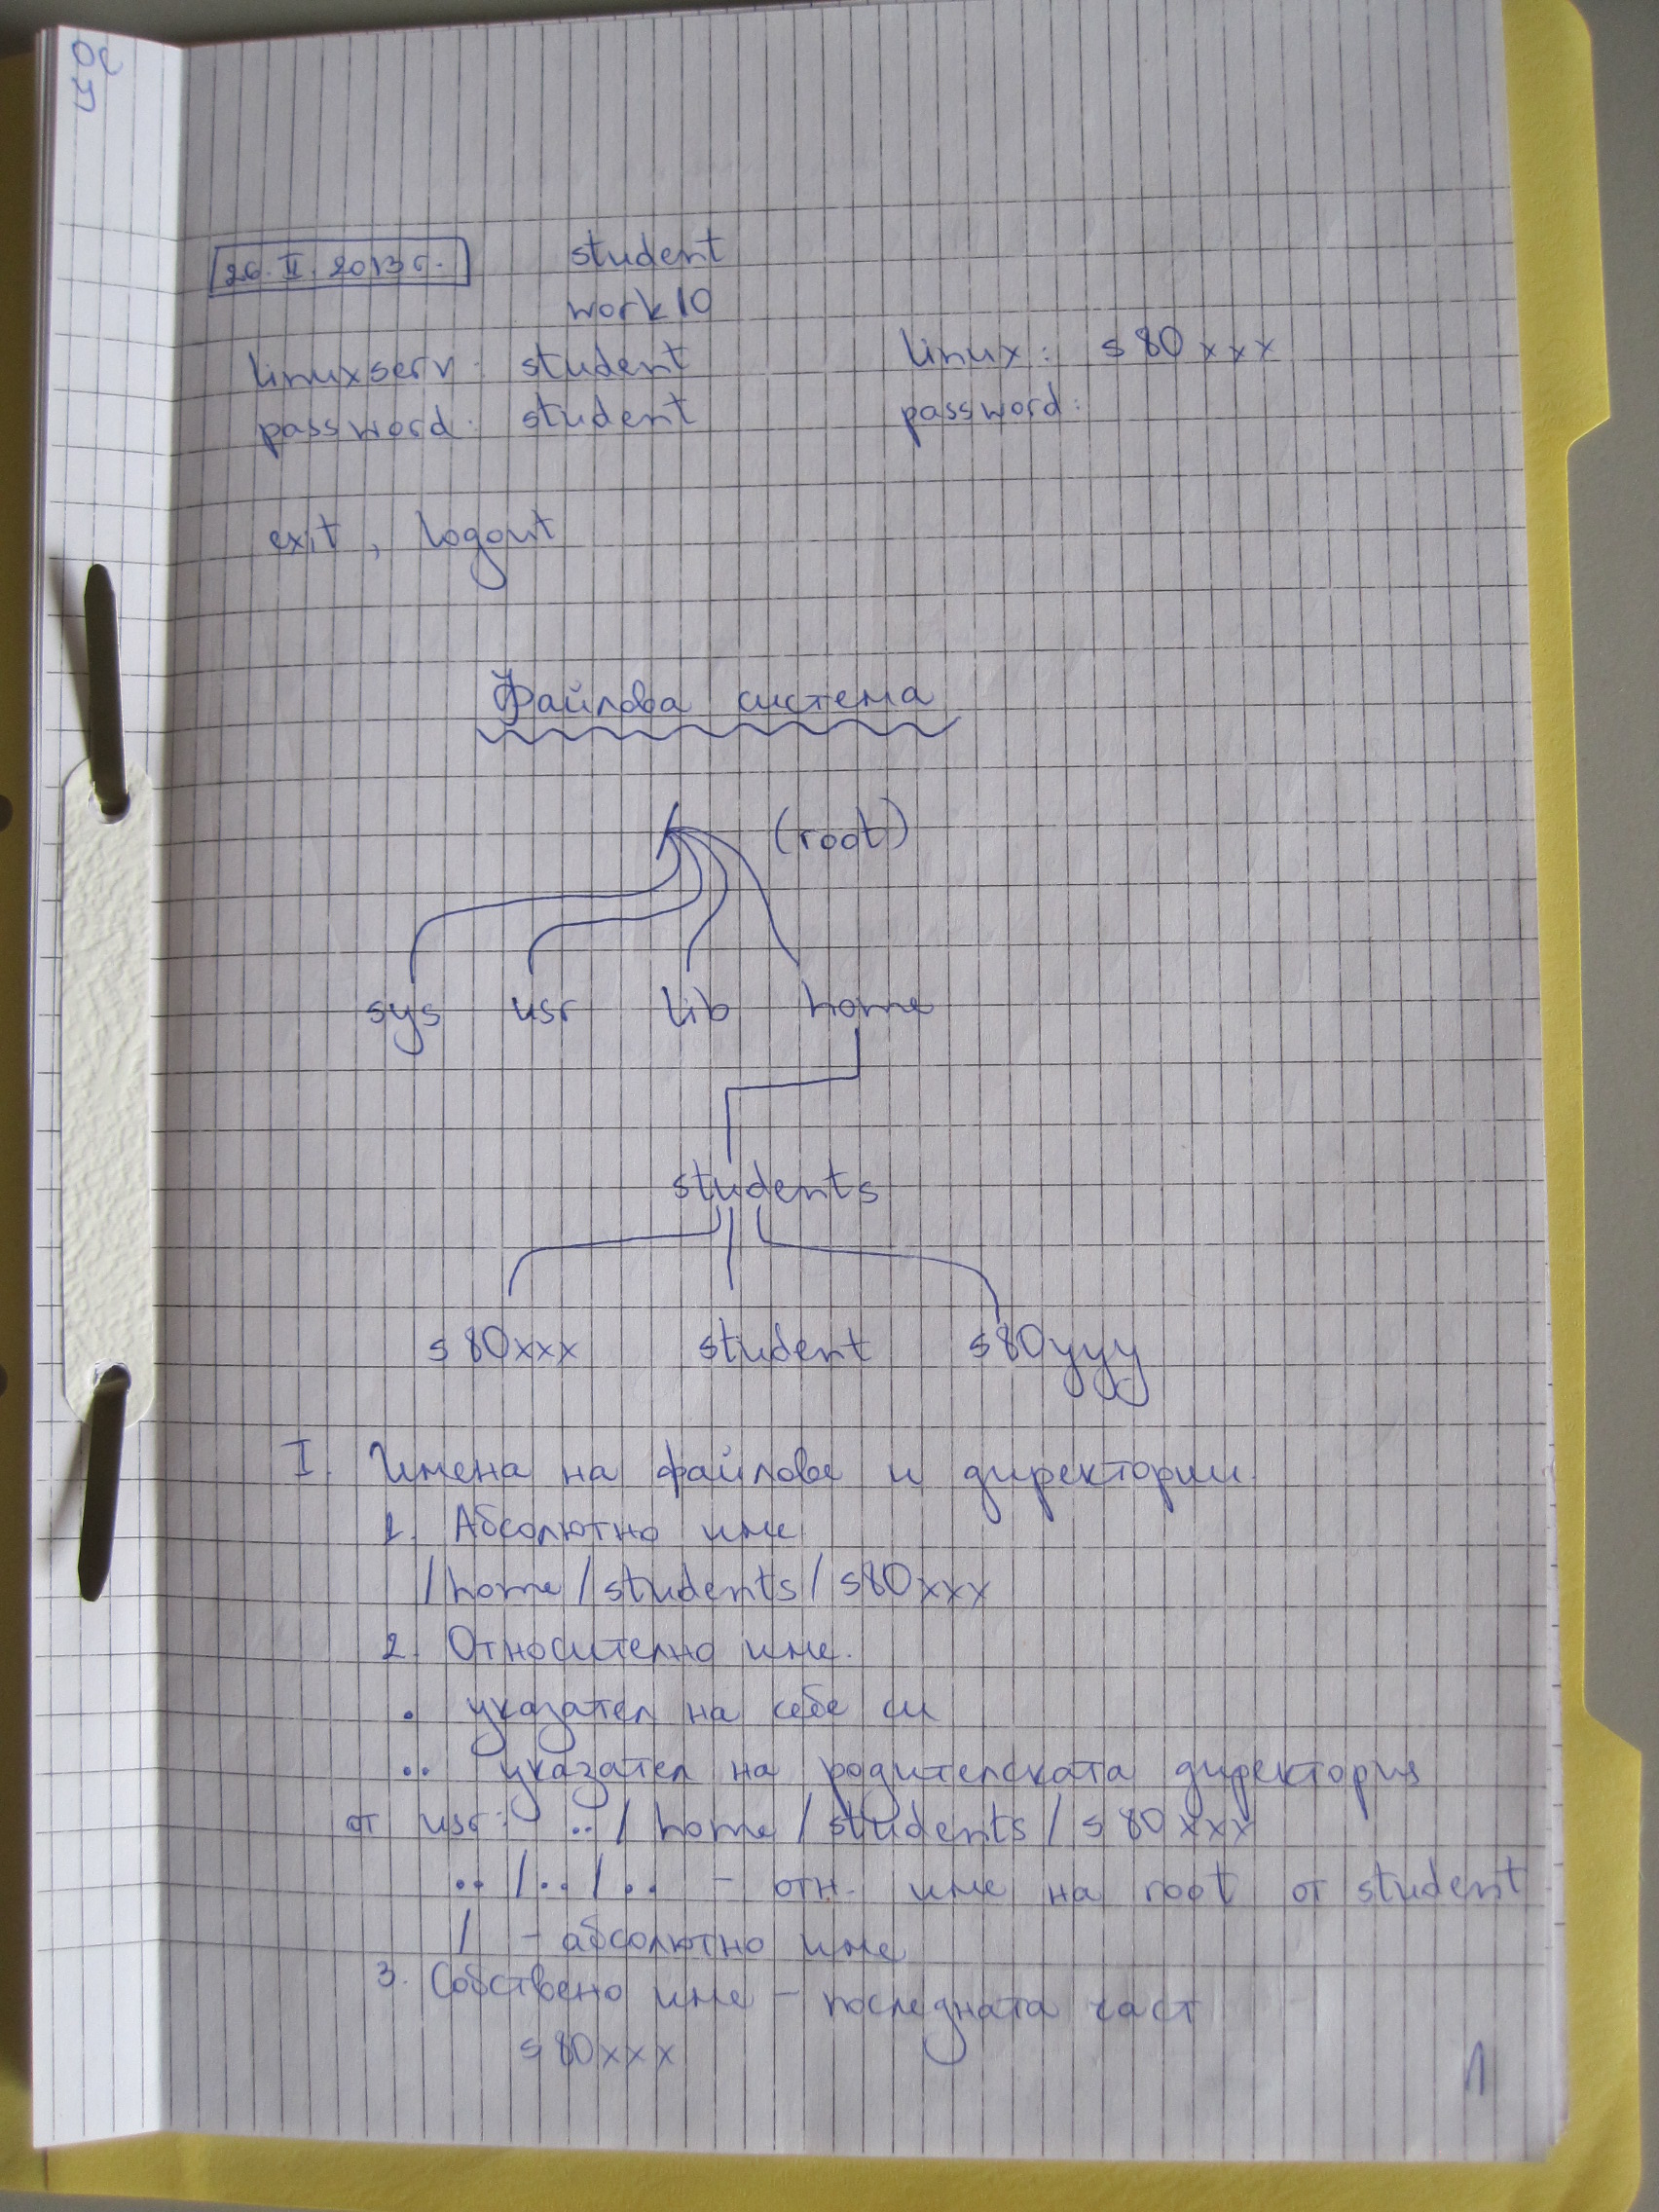 26. II. 2013 г.
student
work10
linuxserv: student
linux: s80xxx
password: student
password:
exit, logout
Файлова система
/ (root)
sys usr lib home
students
s80xxx student s80yyy
I. Имена на файлове и директории
1. Абсолютно име
/home/students/s80xxx
2. Относително име.
. указател на себе си
.. указател на родителската директория
от usr: ../home/students/s80xxx
../../.. - отн. име на root от student
/ - абсолютно име
3. Собствено име - последната част
s80xxx
1